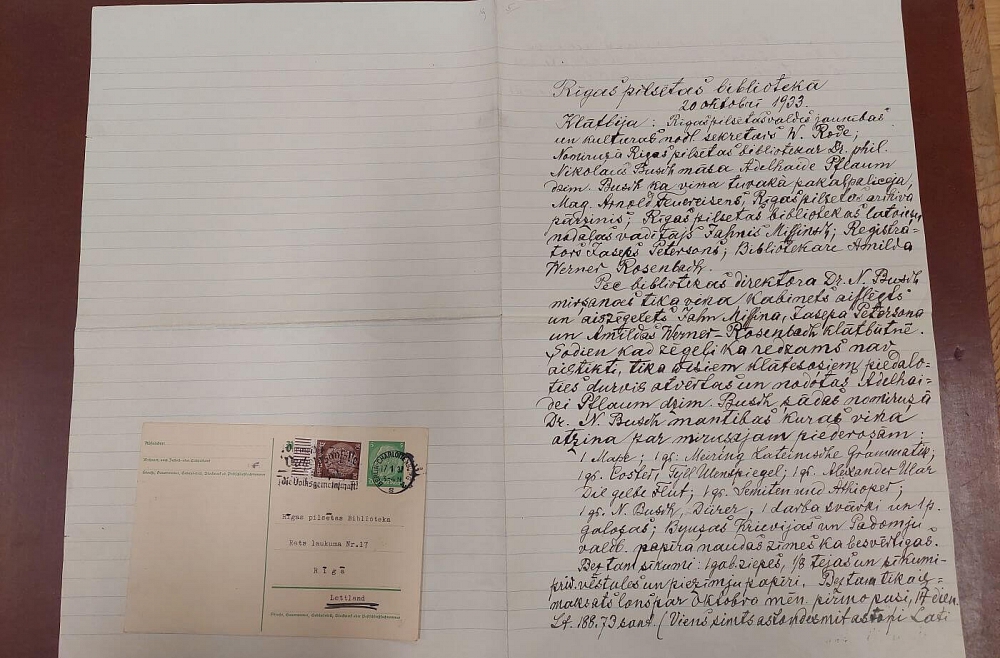 Rīgas pilsētas bibliotekā
20 oktobrī 1933.
Klātbija: Rīgas pilsētas valdes jaunības
un kulturas nod. sekretars W. Rose;
Nomirušā Rīgas pilsētas bibliotekar Dr. phil.
Nikolaus Busch māsa Adelhaide Pflaum
dzim. Busch kā viņa tuvākā pakaļpalicēja,
Mag. Arnold Feuereisens, Rīgas pilsētas archīva
pārzinis; Rīgas pilsētas bibliotekas latviešu
nodaļas vadītājs Jahnis Misiņsch; Registrā-
tors Jaseps Petersons; Bibliotekare Amilda
Werner Rosenbach.
Pēc bibliotekas direktora Dr. N. Busch
miršanas tika viņa kabinets aislēgts
un aizzegelēts Jahn Misiņa, Jasepa Petersona
un Amildas Werner-Rosenbach klātbūtnē.
Šodien kad zēgeli kā redzams nav
aiztikti, tika wisiem klātesošiem piedalo-
ties durvis atvērtas un nodotas Adelhai-
dei Pflaum dzim. Busch šādas nomirušā
Dr. N. Busch mantības kuras viņa
atzina par mirušajam piederošām:
1 Mape; 1 gr. Lateinische Grammatik;
1 gr. Coster, Tyll Ulenspiegel; 1 gr. Alexander Ular
Die gelbe Flut; 1 gr. Semiten und Athioper;
1 gr. N. Busch, Dürer; 1 darba svārki un 1 p.
galošas; Bijušās Krievijas un Padomju
vald. papīra naudas zīmes kā besvērtīgas.
Bez tam sīkumi: 1 gab. ziepes, 1/8 tējas un sīkumi-
priv. vēstules un piezīmju papīri. Bez tam tika iz-
maksāts lons par Oktobra mēn. pirmo pusi, 17 dien.
Ls. 188.73 sant. (Viens simts astoņdesmit astoņi Lati
Absender:
die Volksgemeinschaft!
BERLIN-CHARLOTTENBURG
Rīgas pilsētas Biblioteka
Rats laukuma Nr.17
Rīgā
Lettland